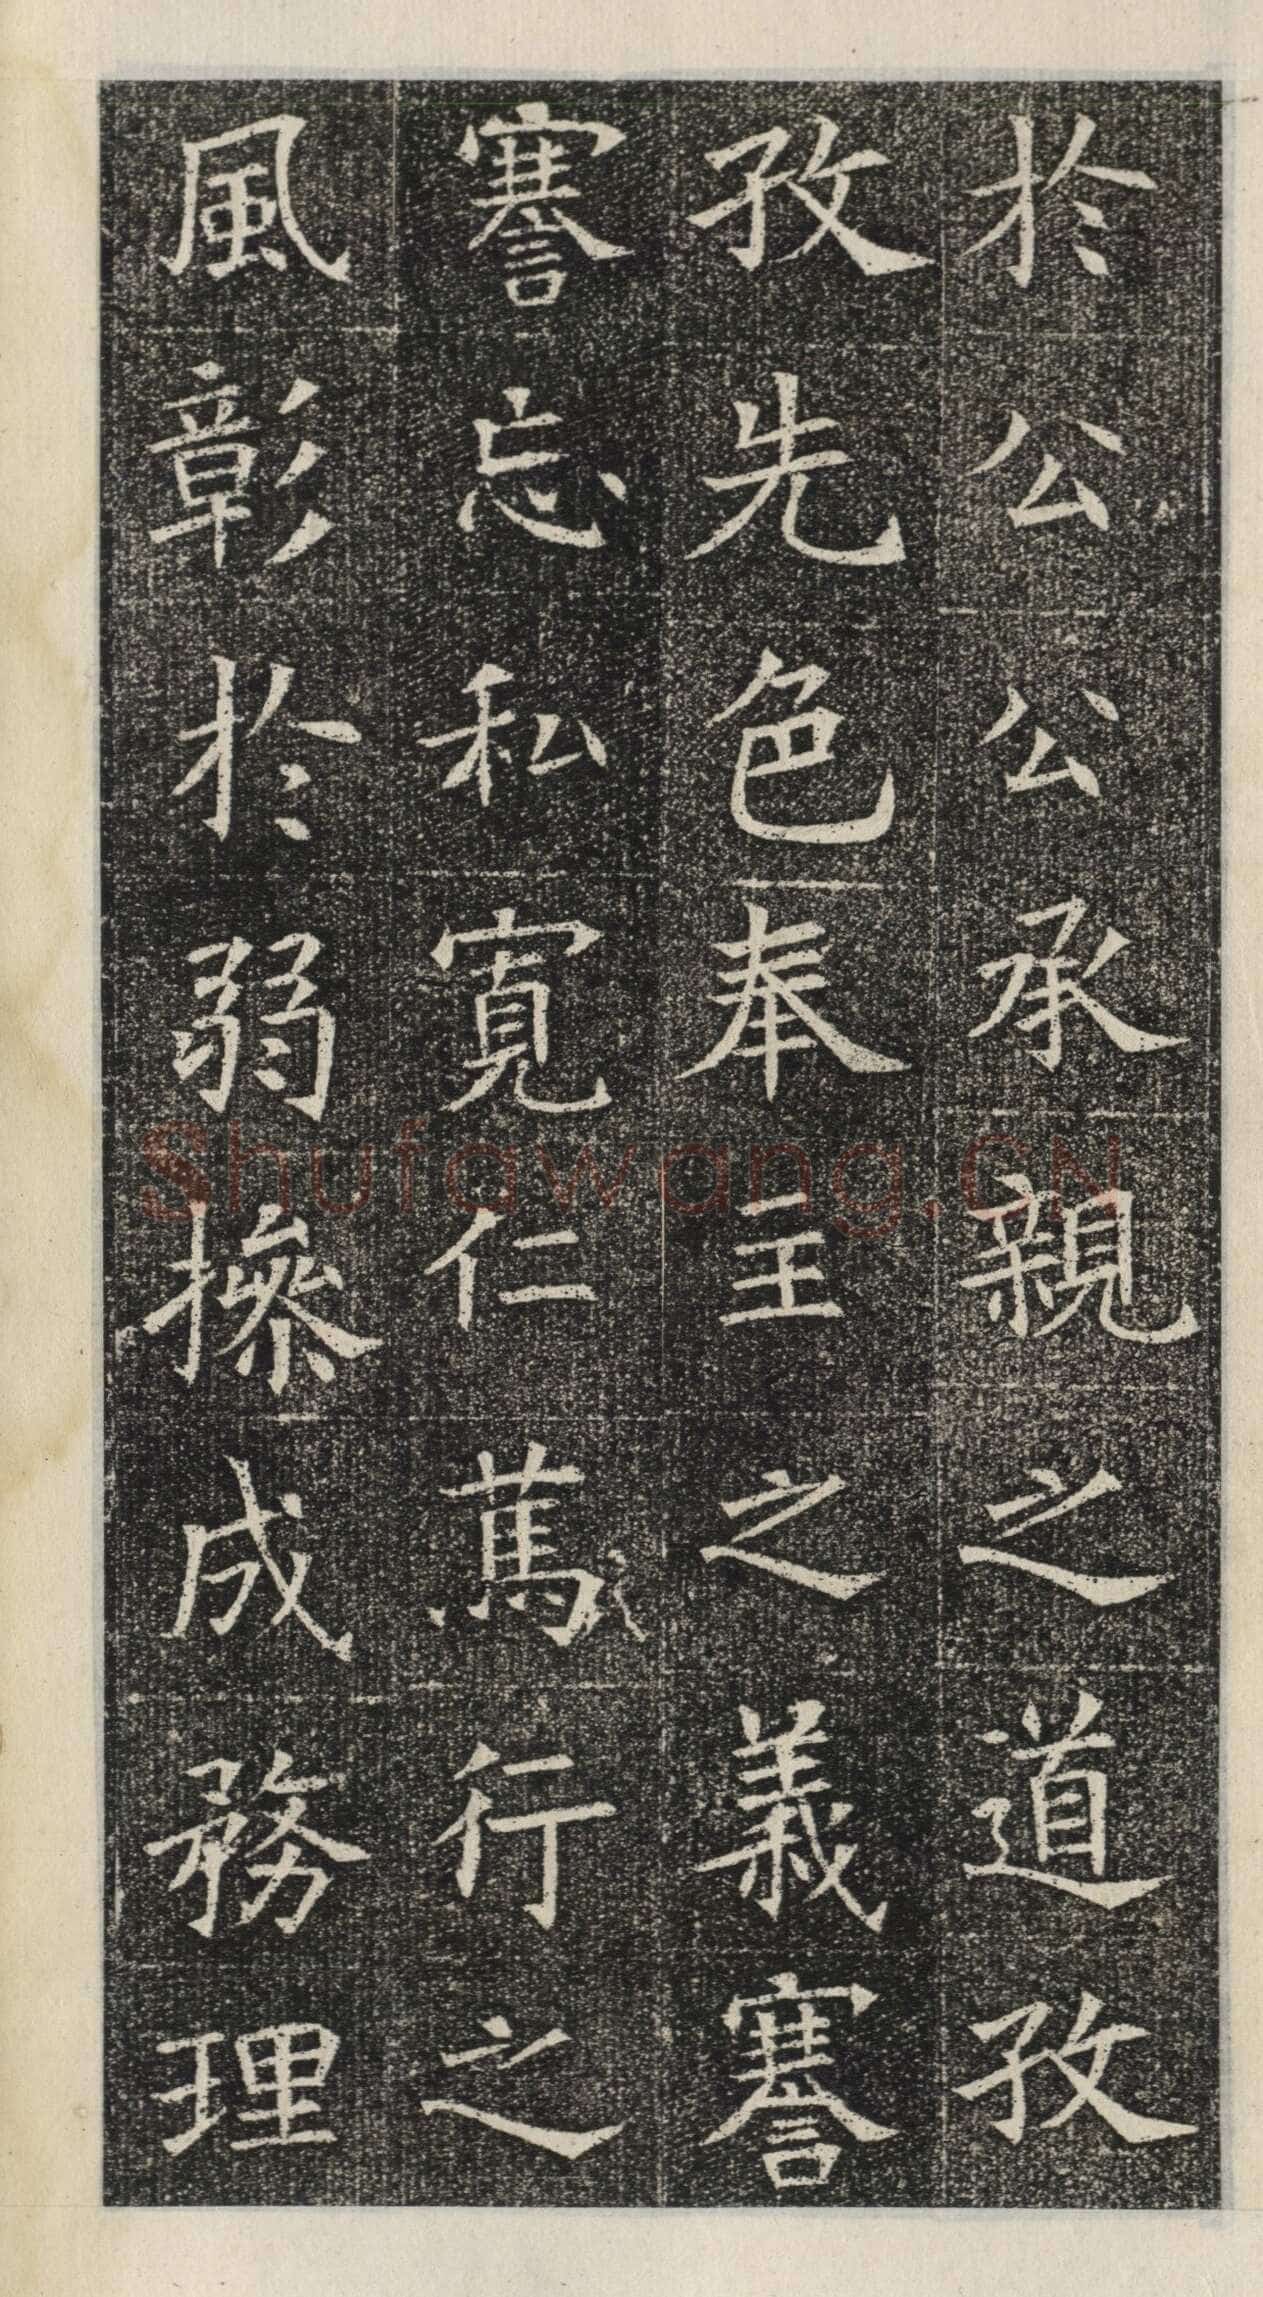 於公公承親之道孜
孜先色奉主之義謇
謇忘私寬仁篤行之
風彰於弱操成務理
Shufawang.CN